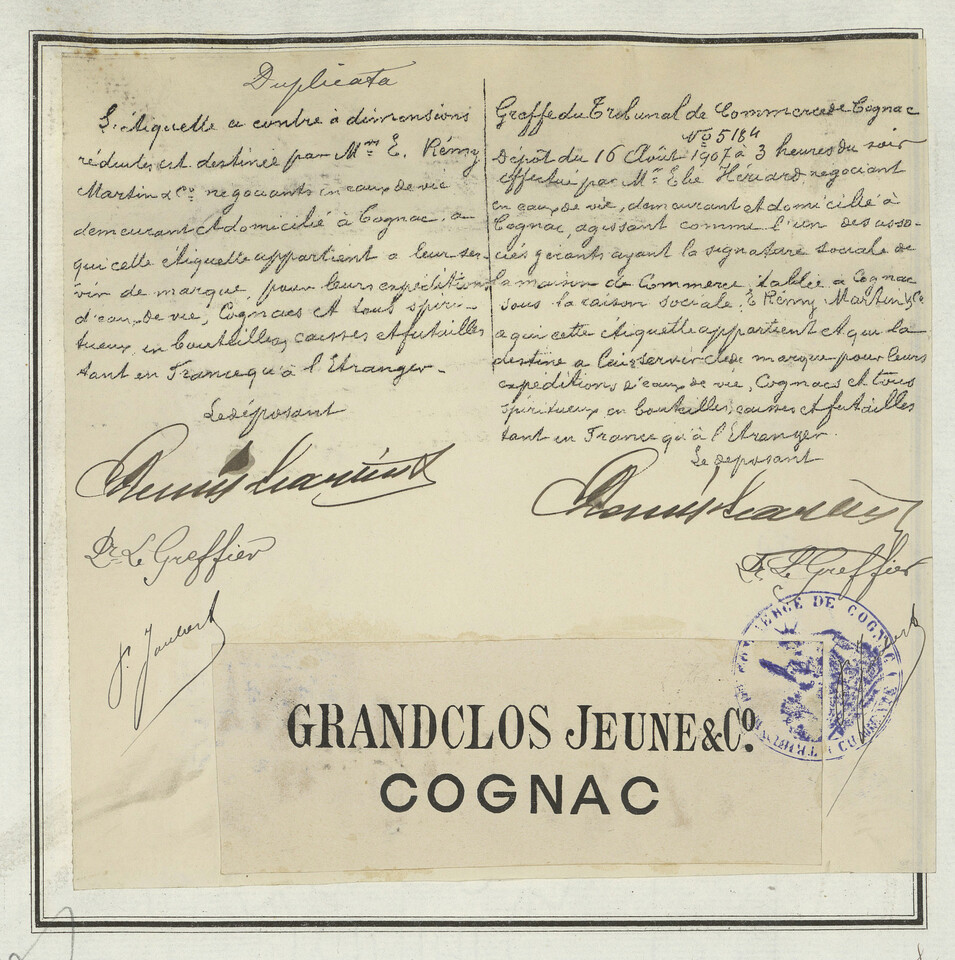 Duplicata
L'étiquette ci contre à dimensions
réduites est destinée par Mrs E. Rémy
Martin & Co négociants en eaux de vie
demeurant et domicilié à Cognac, a
qui cette étiquette appartient a leur ser-
vir de marque, pour leurs expéditions
d'eaux de vie, Cognacs et tous spiri-
tueux en bouteilles, caisses et futailles
tant en France qu'à l'Etranger.
Le déposant
Rémy Martin & Co
Pr Le Greffier
P. Joubert
Greffe du Tribunal de Commerce de Cognac
No 5184
Dépôt du 16 Août 1907 à 3 heures du soir
effectué par Mr Elie Hériard, negociant
en eaux de vie, demeurant et domicilié à
Cognac, agissant comme l'un des asso-
ciés gérants ayant la signature sociale de
la maison de Commerce, établie à Cognac
sous la raison sociale, E Rémy Martin & Co
a qui cette étiquette appartient et qui la
destine a lui servir de marque pour leurs
expéditions d'eaux de vie, Cognacs et tous
spiritueux en bouteilles, caisses et futailles
tant en France qu'à l'Etranger.
Le déposant
Rémy Martin & Co
Pr Le Greffier
COMMERCE DE COGNAC
GRANDCLOS JEUNE & Co.
COGNAC